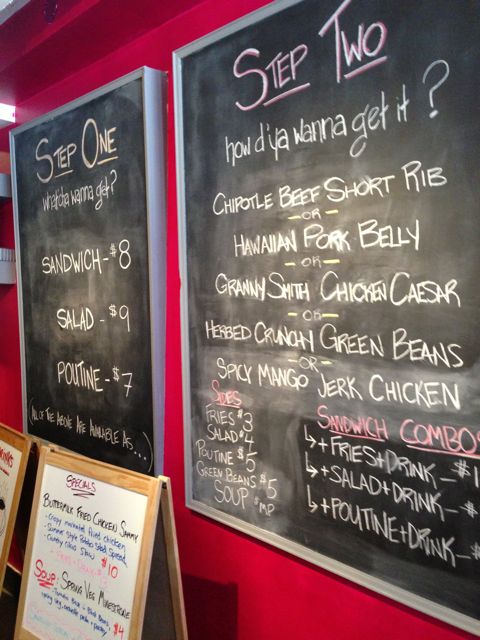 STEP ONE
whatcha wanna get?
SANDWICH - $8
SALAD - $9
POUTINE - $7
(ALL OF THE ABOVE ARE AVAILABLE AS...)
STEP TWO
how d'ya wanna get it?
CHIPOTLE BEEF SHORT RIB
- OR -
HAWAIIAN PORK BELLY
- OR -
GRANNY SMITH CHICKEN CAESAR
- OR -
HERBED CRUNCHY GREEN BEANS
- OR -
SPICY MANGO JERK CHICKEN
SIDES
FRIES $3
SALAD $4
POUTINE $5
GREEN BEANS $5
SOUP $MP
SANDWICH COMBOS
↳ + FRIES + DRINK - $1
↳ + SALAD + DRINK - $
↳ + POUTINE + DRINK - $
SPECIALS
BUTTERMILK FRIED CHICKEN SAMMY
- Crispy marinated fried chicken
- Summer style Potato Salad Spread
- Crunchy citrus slaw
$10
SOUP: SPRING VEG MINESTRONE
$4